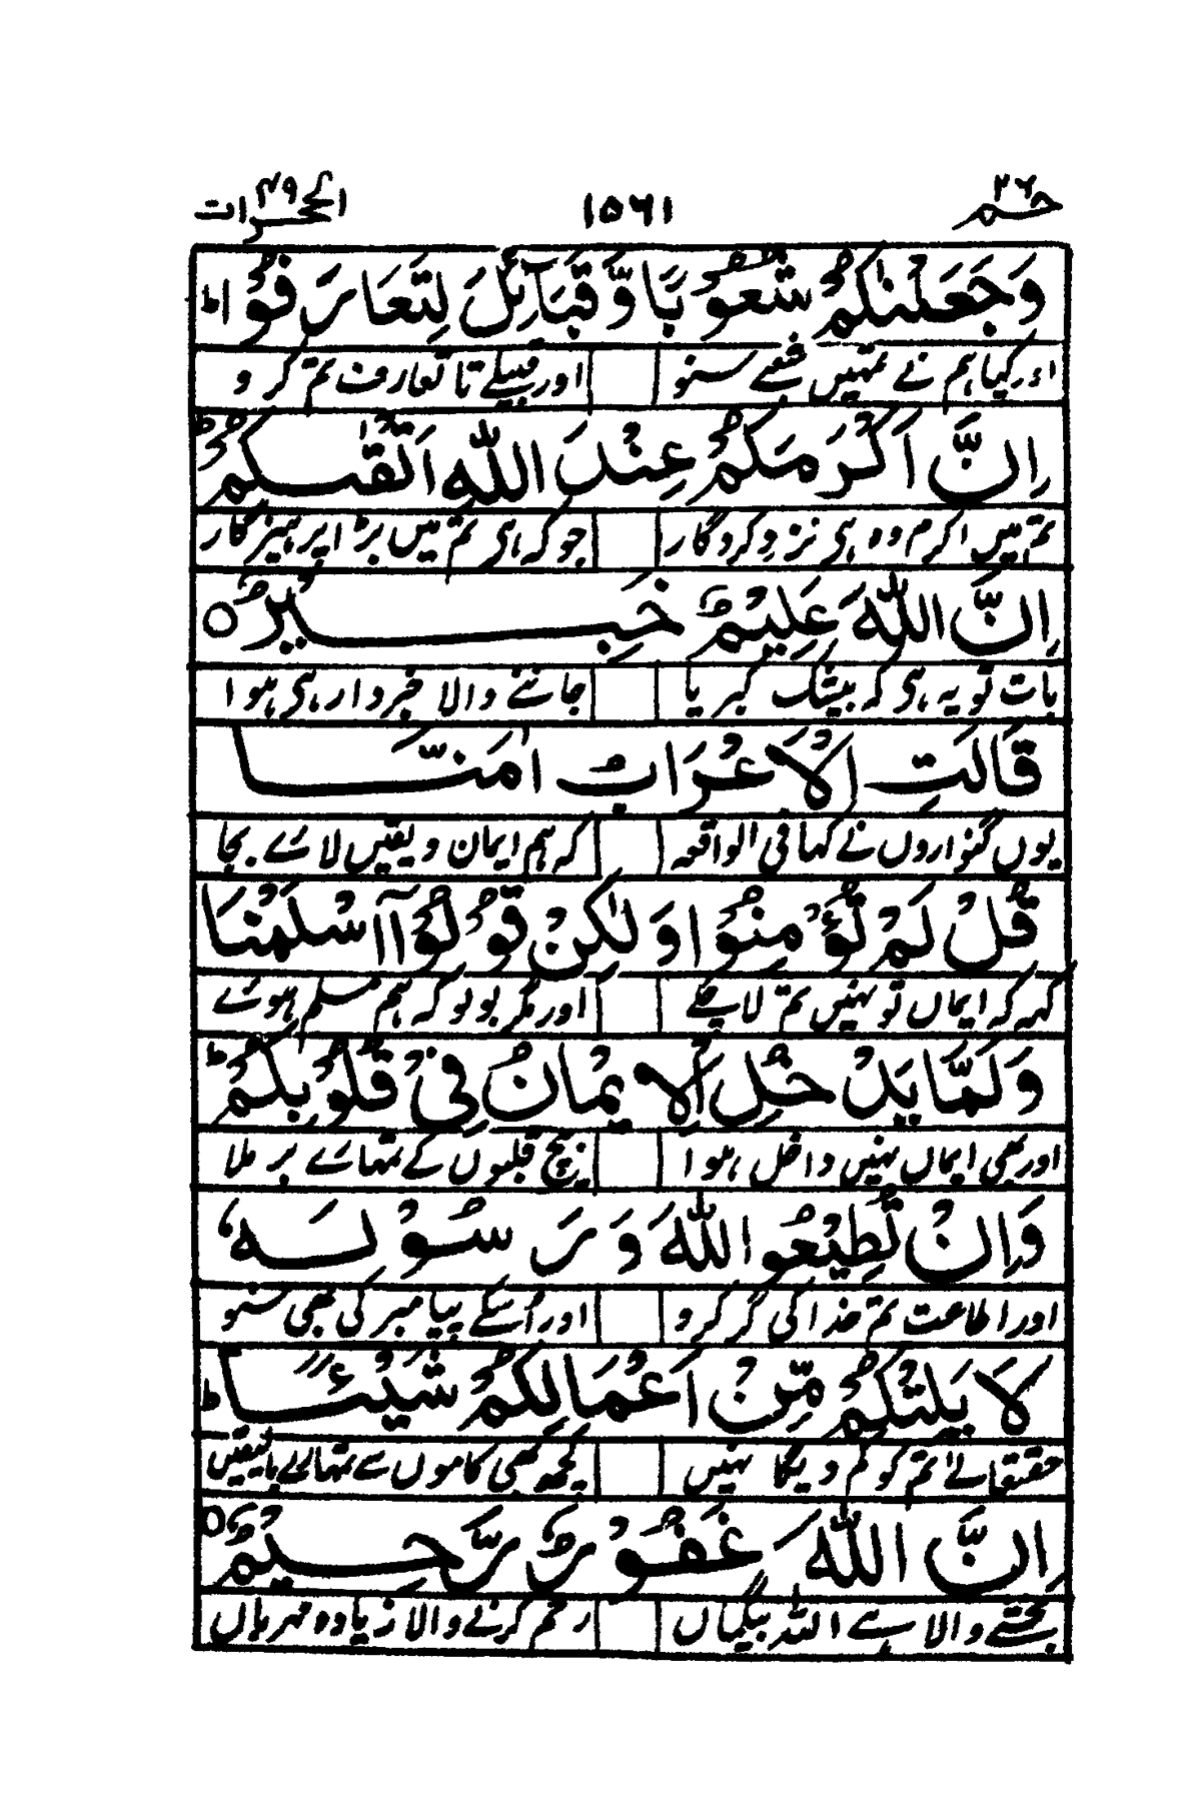 حٰمٓ ٢٦ ١٥٦١ الحجرات ٤٩
وَجَعَلْنٰكُمْ شُعُوْبًا وَّقَبَآئِلَ لِتَعَارَفُوْا ؕ
اور کیا ہم نے تمہیں شعبے سنو اور قبیلے تا تعارف تم کرو
اِنَّ اَكْرَمَكُمْ عِنْدَ اللّٰهِ اَتْقٰىكُمْ ؕ
تم میں اکرم وہ ہی نزد کردگار جو کہ ہی تم میں بڑا پرہیزگار
اِنَّ اللّٰهَ عَلِيْمٌ خَبِيْرٌ ○
بات تو یہ ہی کہ بیشک کبریا جاننے والا خبردار ہی ہوا
قَالَتِ الْاَعْرَابُ اٰمَنَّا
یوں گنواروں نے کہا فی الواقعہ کہ ہم ایمان و یقیں لائے بجا
قُلْ لَّمْ تُؤْمِنُوْا وَلٰكِنْ قُوْلُوْۤا اَسْلَمْنَا
کہہ کہ ایماں تو نہیں تم لا چکے اور مگر بولو کہ ہم مسلم ہوئے
وَلَمَّا يَدْخُلِ الْاِيْمَانُ فِيْ قُلُوْبِكُمْ ؕ
اور بھی ایماں نہیں داخل ہوا بیچ قلبوں کے تمہارے بر ملا
وَاِنْ تُطِيْعُوا اللّٰهَ وَرَسُوْلَهٗ
اور اطاعت تم خدا کی گر کرو اور اُسکے پیامبر کی بھی سنو
لَا يَلِتْكُمْ مِّنْ اَعْمَالِكُمْ شَيْئًا ؕ
حقتعالےٰ تم کو کم دیگا نہیں کچھ بھی کاموں سے تمہارے بالیقیں
اِنَّ اللّٰهَ غَفُوْرٌ رَّحِيْمٌ ○
بخشنے والا ہے اللہ بیگماں رحم کرنے والا زیادہ مہرباں